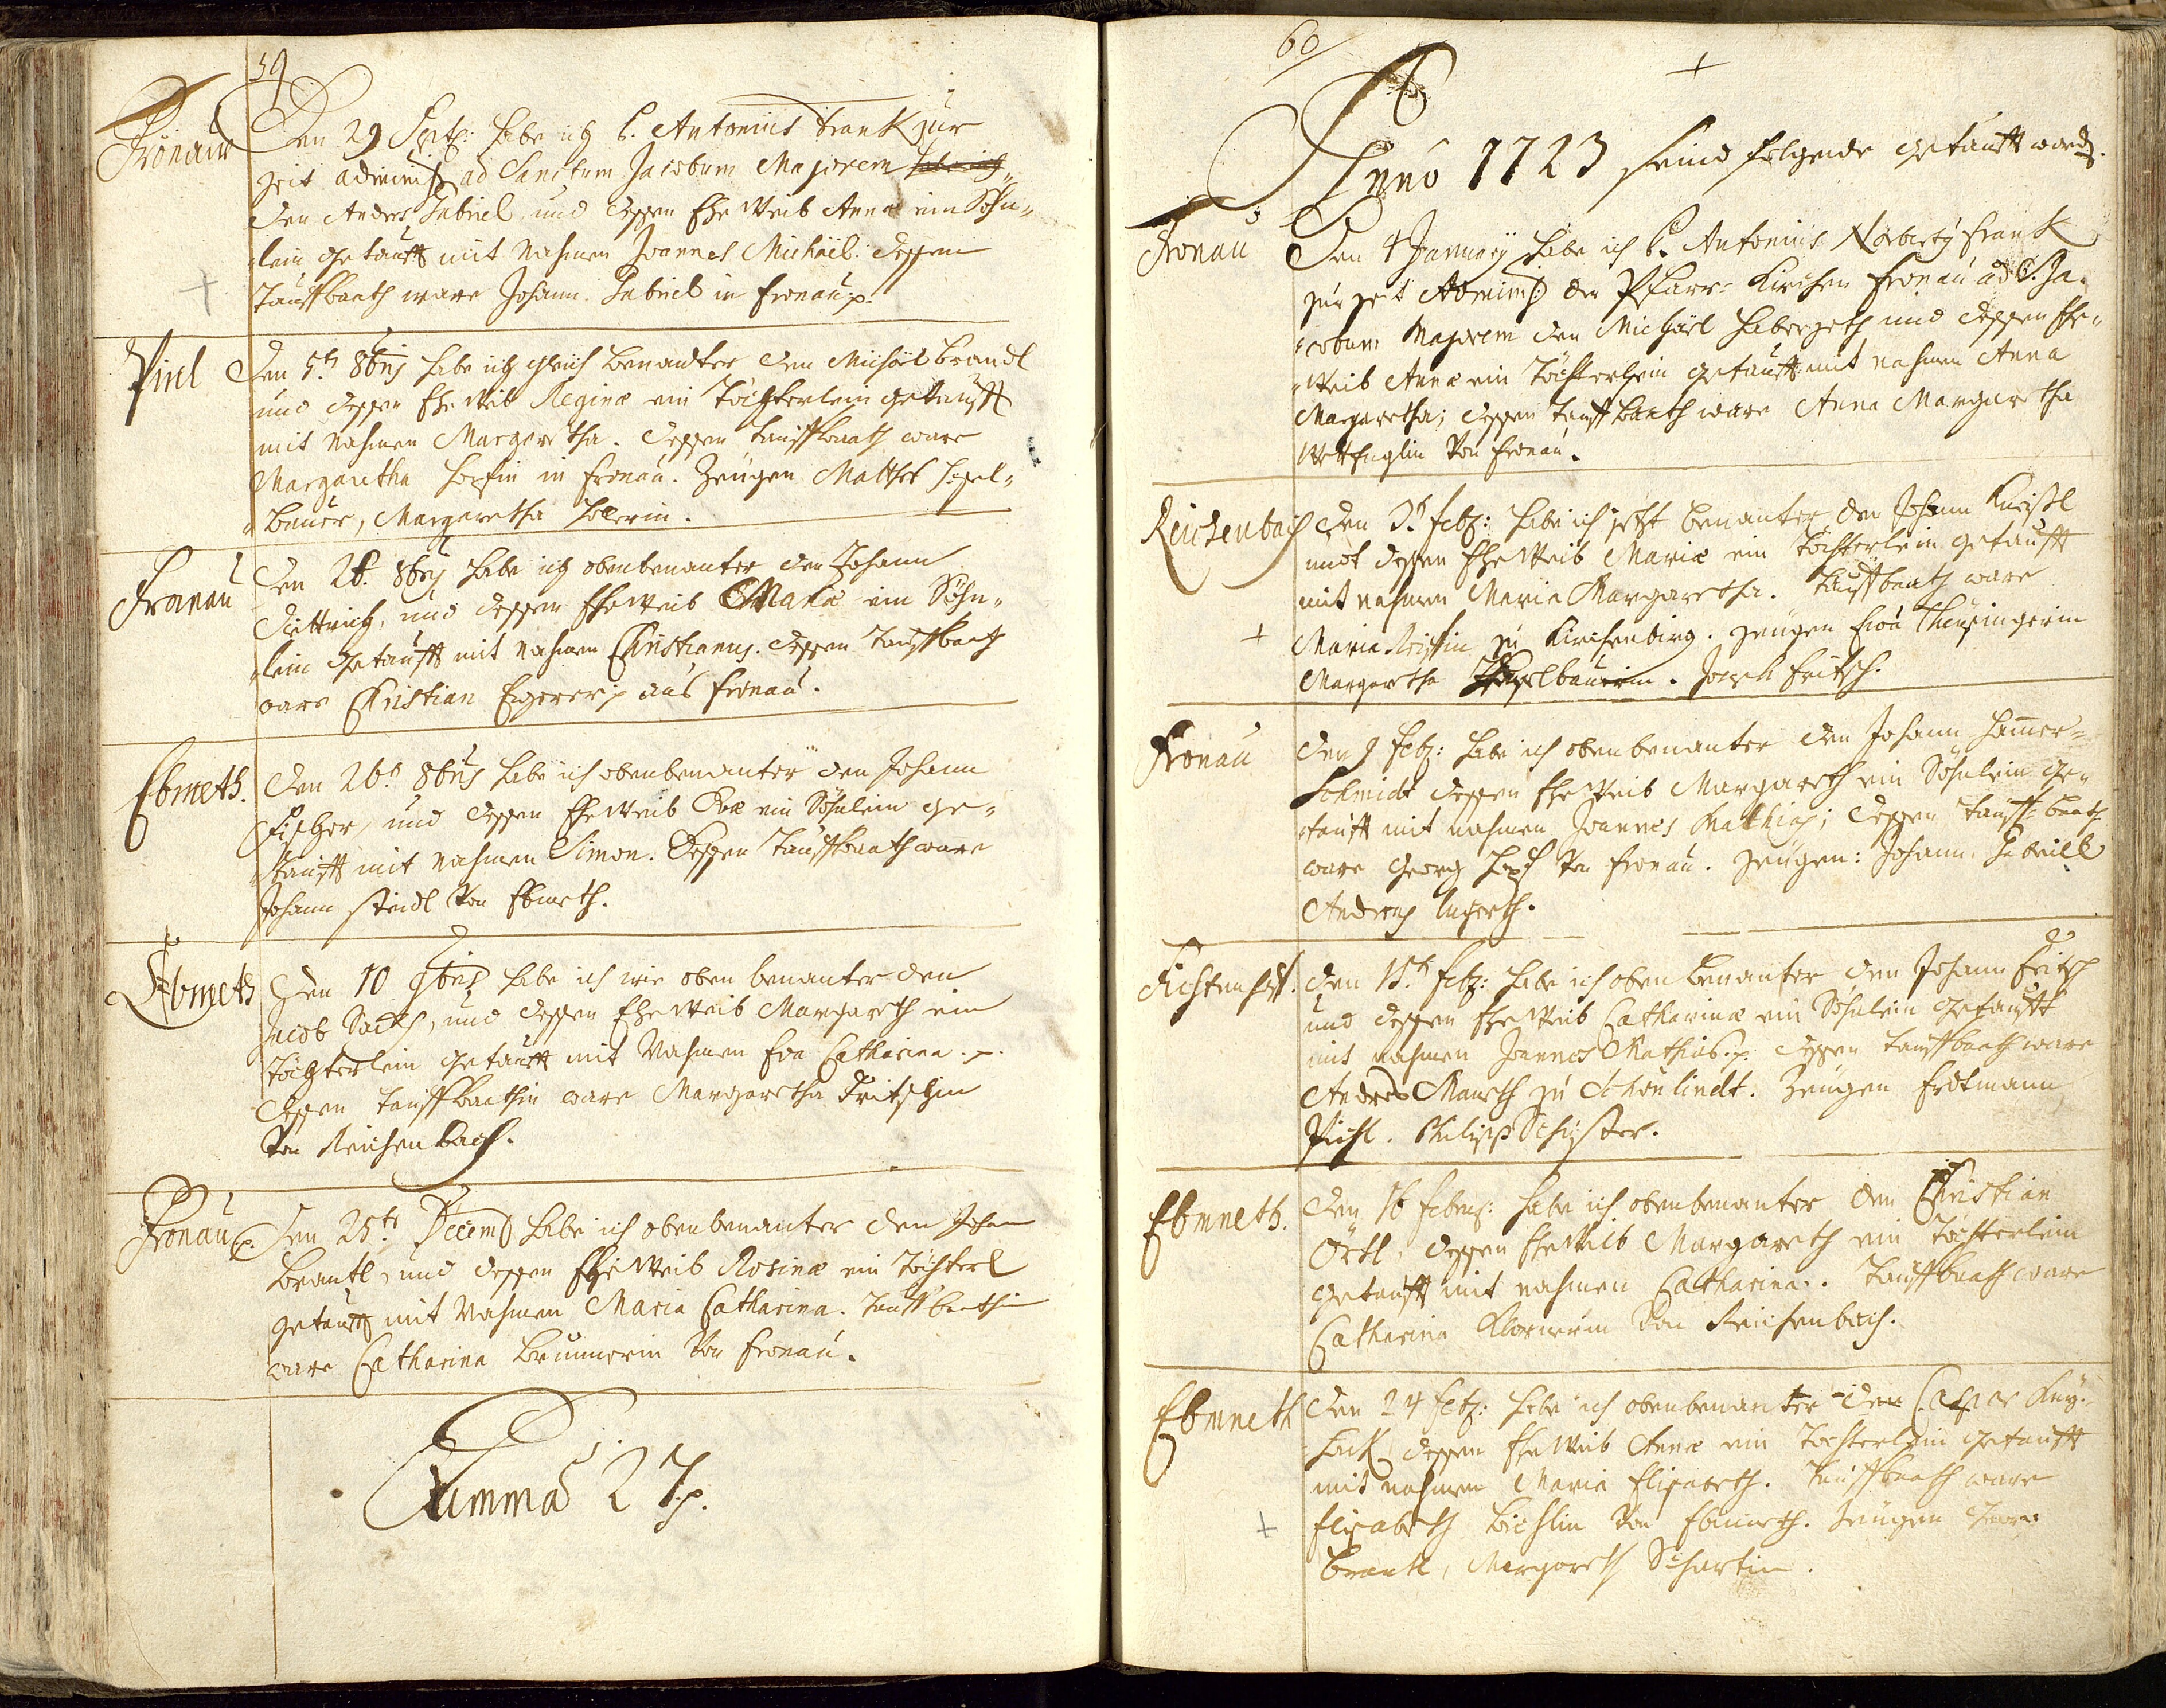 59
Fronau
Den 29 Septb: habe ich P. Antonius Frank zur
zeit administ ad Sanctum Jacobum Majorem habe ich
den Andres Gabriel und dessen Ehe Weib Anna ein Söhn„
„lein getaufft mit Nahmen Joannes Michäel. dessen
Tauffbaath ware Johann Gabriel in Fronau p.
Pirl
Den 5t. 8bris habe ich gleich benandter den Michäel Brandl
und dessen Ehe Weib Reginæ ein Töchterlein getaufft
mit Nahmen Margaretha. dessen Tauffbaath ware
Margaretha in Fronau. Zeugen Matthes
„bauer, Margaretha
Fronau
Den 8bris habe ich obenbenanter den Johann
Diettrich, und dessen Ehe Weib Maria ein Söhn„
„lein getaufft mit Nahmen Christianus. dessen Tauffbaath
ware Christian aus Fronau.
Ebmeth.
Den 26t 8bris habe ich obenbenanter den Johann
Fischer, und dessen Ehe Weib Evæ ein Söhnlein ge„
„taufft mit Nahmen Simon. Dessen Tauffbaath ware
Johann Steidl Von Ebmeth.
Ebmeth
Den 10 9bris habe ich wie oben benanter den
Jacob und dessen Ehe Weib Margareth ein
Töchterlein getaufft mit Nahmen Eva Catharina. p.
Dessen Tauffbaathin ware Margaretha Fritschin
Von Reichenbach.
Fronau p.
Den 25t. Decemb habe ich obenbenanter den Johan
Brantl, und dessen Ehe Weib Rosinæ ein Töchterl
getaufft mit Nahmen Maria Catharina. Tauffbaathin
ware Catharina Brunnerin Von Fronau.
Summa 27 p.
60
Anno 1723 seind folgende getaufft word.
Fronau
Den 4 January habe ich P. Antonius Norbertg Frank
zur zeit Administ: der Pfarr= Kirchen Fronau ad S. Ja„
„cobum Majorem den Michäel und dessen Ehe„
„Weib Annæ ein Töchterlein getaufft mit nahmen Anna
Margaretha; dessen Tauff baath ware Anna Margaretha
Von Fronau.
Reichenbach
Den 3t Feb: habe ich jetzt benanter den Johann
undt dessen Ehe Weib Mariæ ein Töchterlein getaufft
mit nahmen Maria Margaretha. Tauffbaath ware
Maria zu Kirchenbirg. Zeugen Eva
Margretha Joseph Fritsch.
Fronau
Den 9 Feb: habe ich obenbenanter den Johann Hamer=
Schmidt dessen Ehe Weib Margareth ein Söhnlein ge„
„taufft mit nahmen Joannes Mathias; dessen Tauff=baath
ware Georg Von Fronau. Zeugen: Johann Gabriel
Andreas
Den 15t. Feb: habe ich oben benanter den Johann Fritsch
und dessen Ehe Weib Catharinæ ein Söhnlein getaufft
mit nahmen Joannes Mathias. p. dessen Tauffbaath ware
Andres zu Schönlindt. Zeugen Erdtmann
Pichl. Philipp Schuster.
Ebmneth.
Den 16 Febru: habe ich obenbenanter den Christian
Örtl, dessen Ehe Weib Margareth ein Töchterlein
getaufft mit nahmen Catharina. Tauffbaath ware
Catharina Von Reichenbach.
Ebmneth
Den 24 Feb: habe ich obenbenanter den Caspar
dessen Ehe Weib Annæ ein Töchterlein getaufft
mit nahmen Maria Elisabeth. Tauffbaath ware
Elisabeth Von Ebmneth. Zeugen
Brantl, Margareth